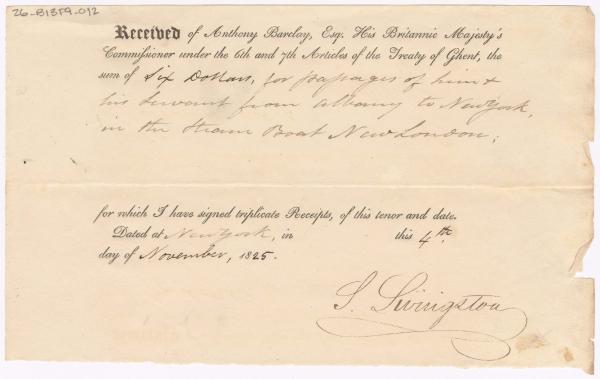 26-B13F9-012
Received of Anthony Barclay, Esq. His Britannic Majesty's
Commissioner under the 6th and 7th Articles of the Treaty of Ghent, the
sum of Six Dollars, for passages of him &
his Servant from Albany to New York,
in the Steam Boat New London;
for which I have signed triplicate Receipts, of this tenor and date.
Dated at New York, in this 4th.
day of November, 1825.
S. Livingston